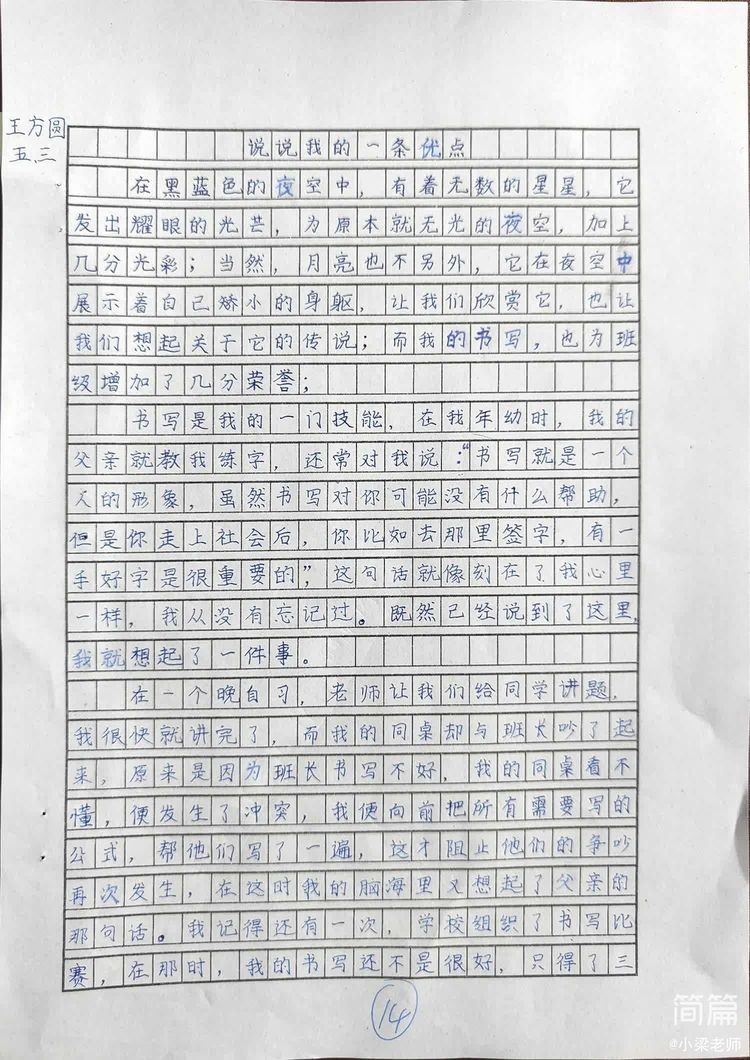 王方圆
五三
说说我的一条优点
在黑蓝色的夜空中，有着无数的星星，它
发出耀眼的光芒，为原本就无光的夜空，加上
几分光彩；当然，月亮也不另外，它在夜空中
展示着自己矫小的身躯，让我们欣赏它，也让
我们想起关于它的传说；而我的书写，也为班
级增加了几分荣誉；
书写是我的一门技能，在我年幼时，我的
父亲就教我练字，还常对我说：“书写就是一个
人的形象，虽然书写对你可能没有什么帮助，
但是你走上社会后，你比如去那里签字，有一
手好字是很重要的”，这句话就像刻在了我心里
一样，我从没有忘记过。既然已经说到了这里，
我就想起了一件事。
在一个晚自习，老师让我们给同学讲题，
我很快就讲完了，而我的同桌却与班长吵了起
来，原来是因为班长书写不好，我的同桌看不
懂，便发生了冲突，我便向前把所有需要写的
公式，帮他们写了一遍，这才阻止他们的争吵
再次发生，在这时我的脑海里又想起了父亲的
那句话。我记得还有一次，学校组织了书写比
赛，在那时，我的书写还不是很好，只得了三
14
简篇
@小梁老师